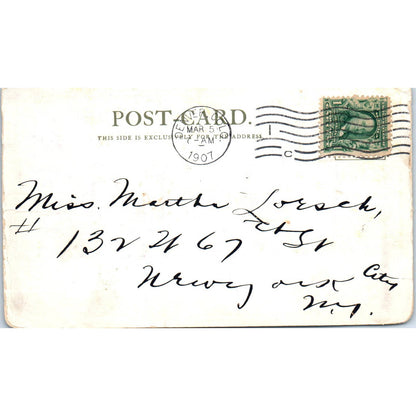 POST-CARD.
THIS SIDE IS EXCLUSIVELY FOR THE ADDRESS.
MAR 5
7-AM
1907
1
C
Miss. Martha Lorsch,
# 132 W 67th St
New york City
N.y.